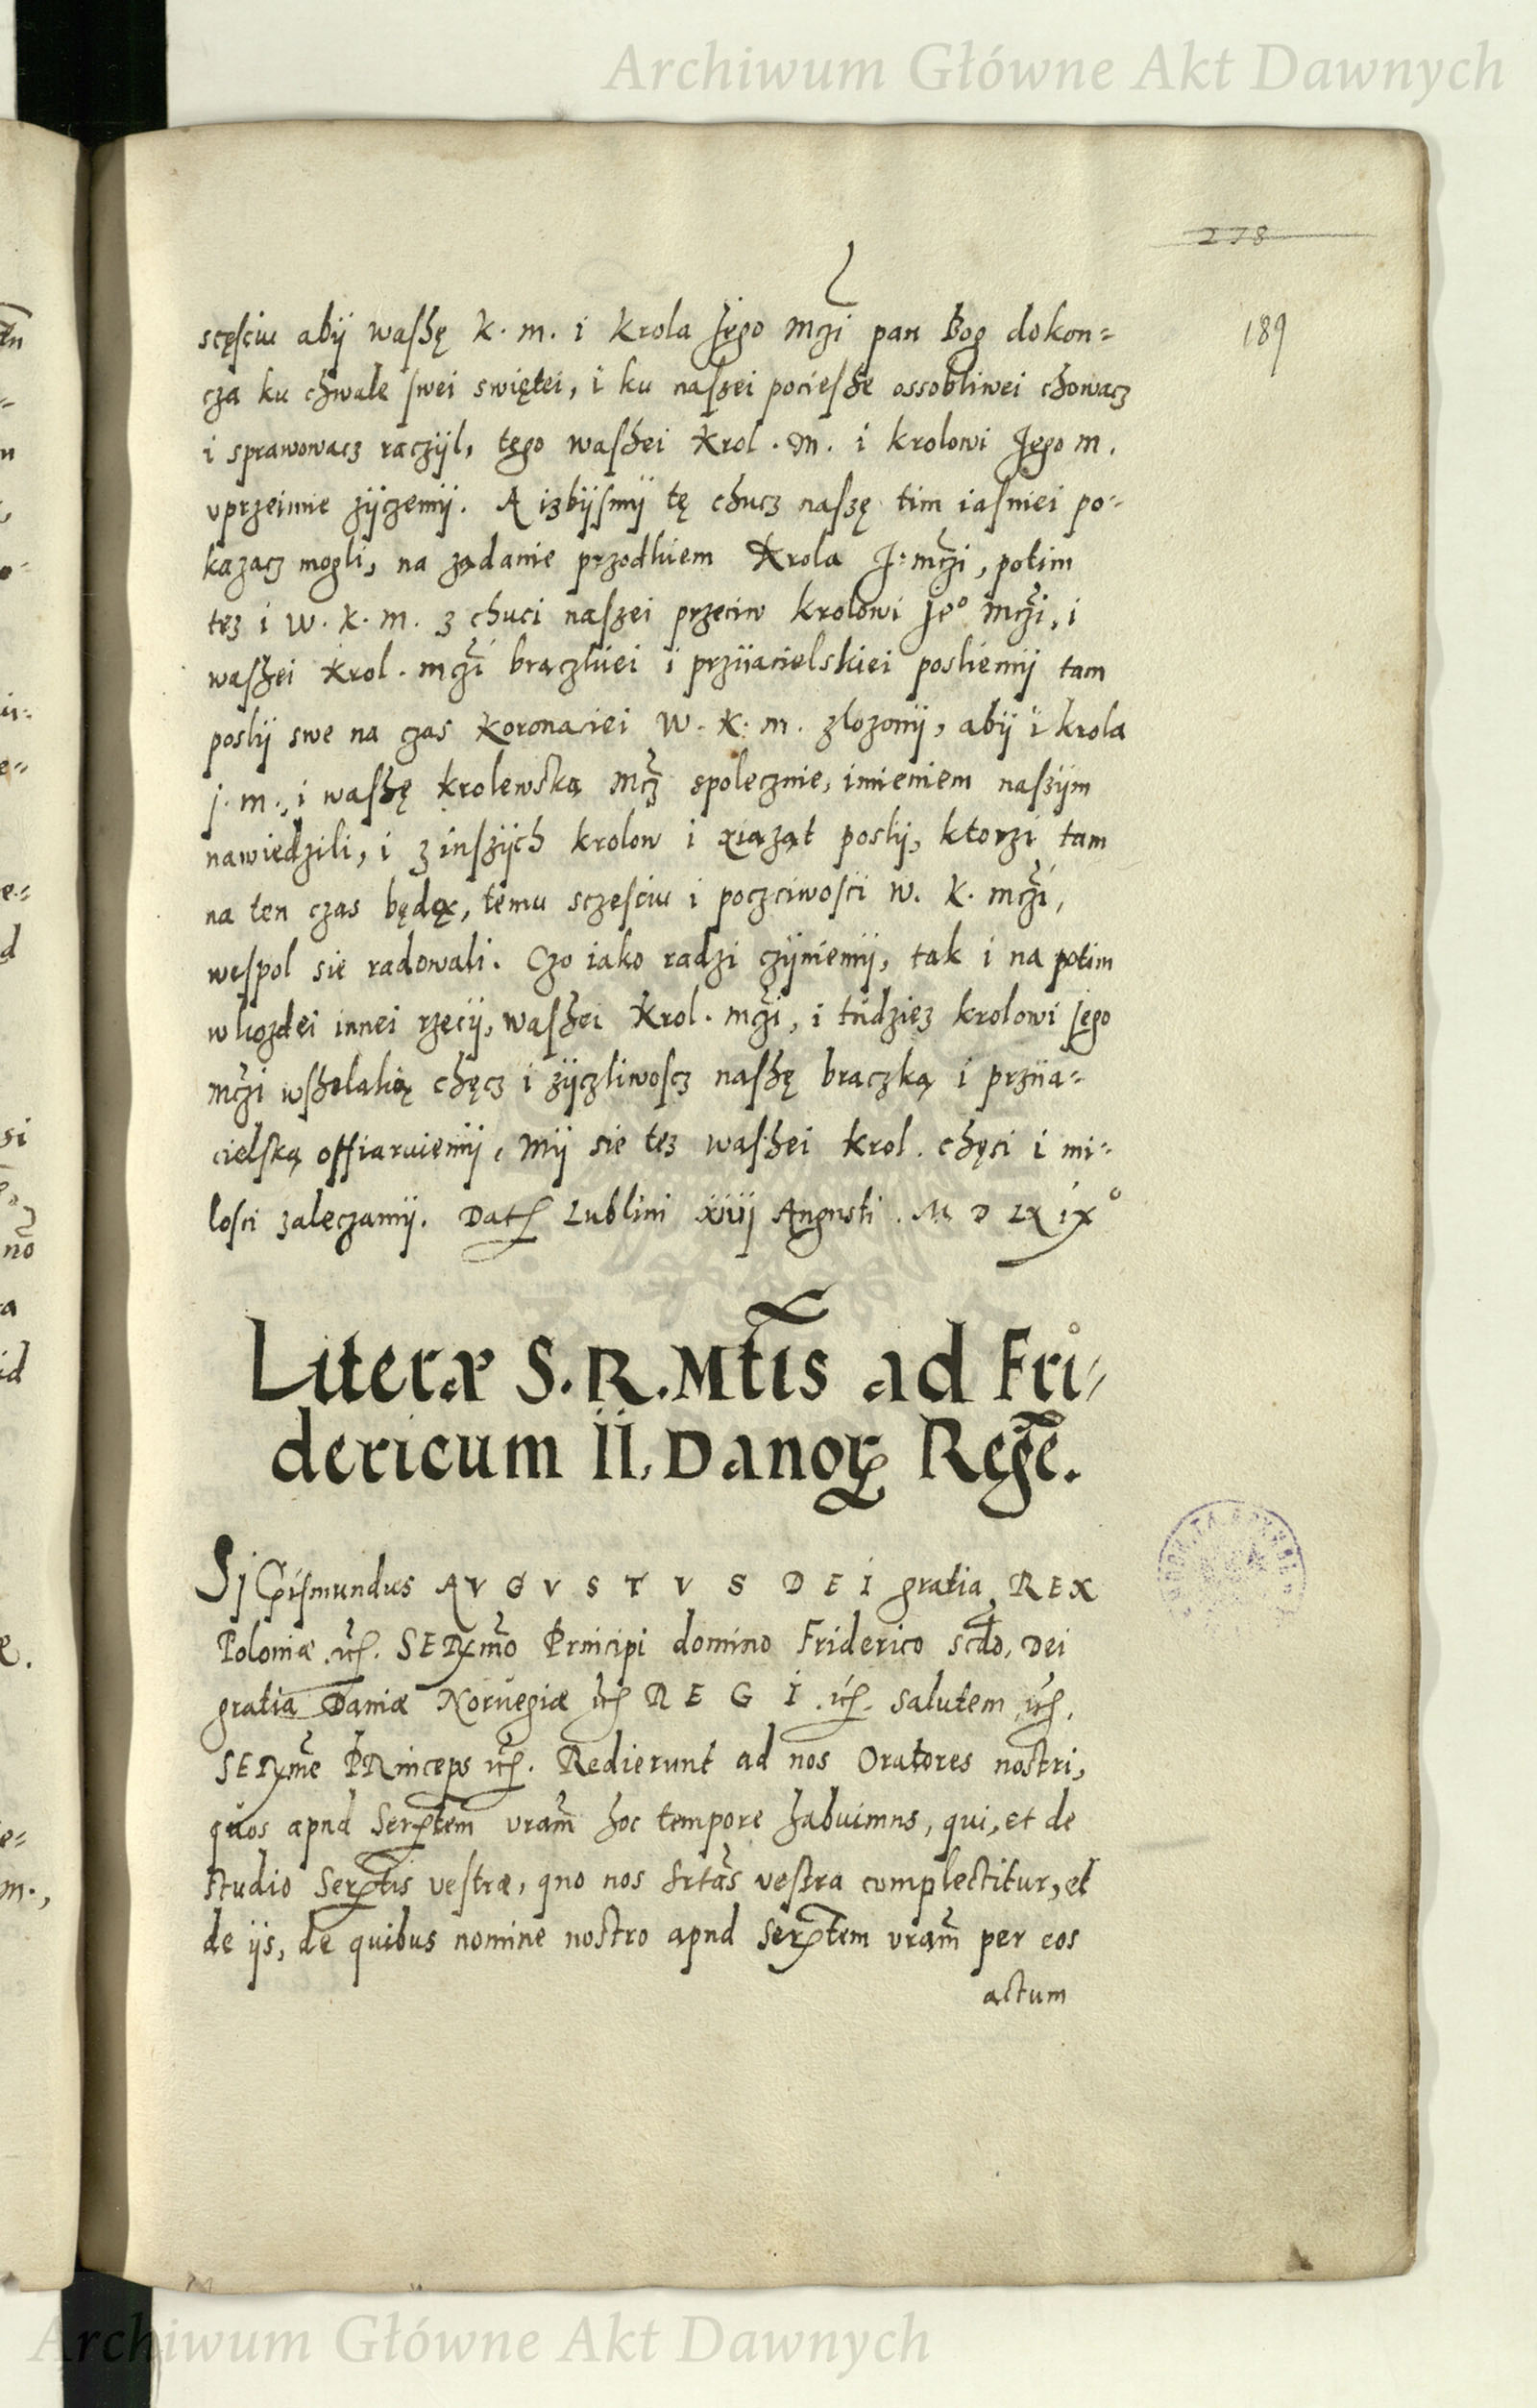 Archiwum Główne Akt Dawnych
278
189
scęsciu abÿ washę K. m. i Krola Jego Mczi pan Bog dokon=
cza ku chwale swei swiętei, i ku naszei pociesze ossobliwei chowacz
i sprawowacz raczÿl, tego washei Krol. M. i krolowi Jego m.
vprzeimie zÿczemÿ. A izbÿsmÿ tę chucz naszę tim iasniei po=
kazacz mogli, na ządanie przodkiem Krola J: mczi, potim
tez i W. K. m. z chuci naszei przeciw krolowi Je° Mczi, i
waszei Krol. mczi braczkiei i prziiacielskiei posliemÿ tam
poslÿ swe na czas Koronaciei W. K. m. zlozonÿ, abÿ i krola
j. m., i washę krolewską Mcz spolecznie, imieniem naszÿm
nawiedzili, i z inszÿch krolow i xiaząt poslÿ, ktorzi tam
na ten czas będą, temu sczesciu i poczciwosci W. K. mczi,
wespol sie radowali. Czo iako radzi czÿniemÿ, tak i na potim
w kozdei innei rzecÿ, washei Krol. mczi, i tudziez krolowi Jego
mczi wshelaką chęcz i zÿczliwoscz nashę braczką i prziia=
cielską offiaruiemÿ, Mÿ sie tez washei krol. chęci i mi=
losci zaleczamÿ. Dat Lublini xiiij Augusti. M D LX ix°
Literæ S. R. Mtis ad Fri=
dericum II. Danor Regē.
Sigismundus AVGVSTVS DEI gratia, REX
Poloniæ etc. SERmo Principi domino Friderico scdo, Dei
gratia Daniæ Norvegiæ etc REGI etc. salutem etc.
SERme PRinceps etc. Redierunt ad nos Oratores nostri,
quos apud Sertem vram hoc tempore habuimus, qui, et de
studio Sertis vestræ, quo nos Srtas vestra complectitur, et
de iis, de quibus nomine nostro apud Sertem vram per eos
actum
Archiwum Główne Akt Dawnych